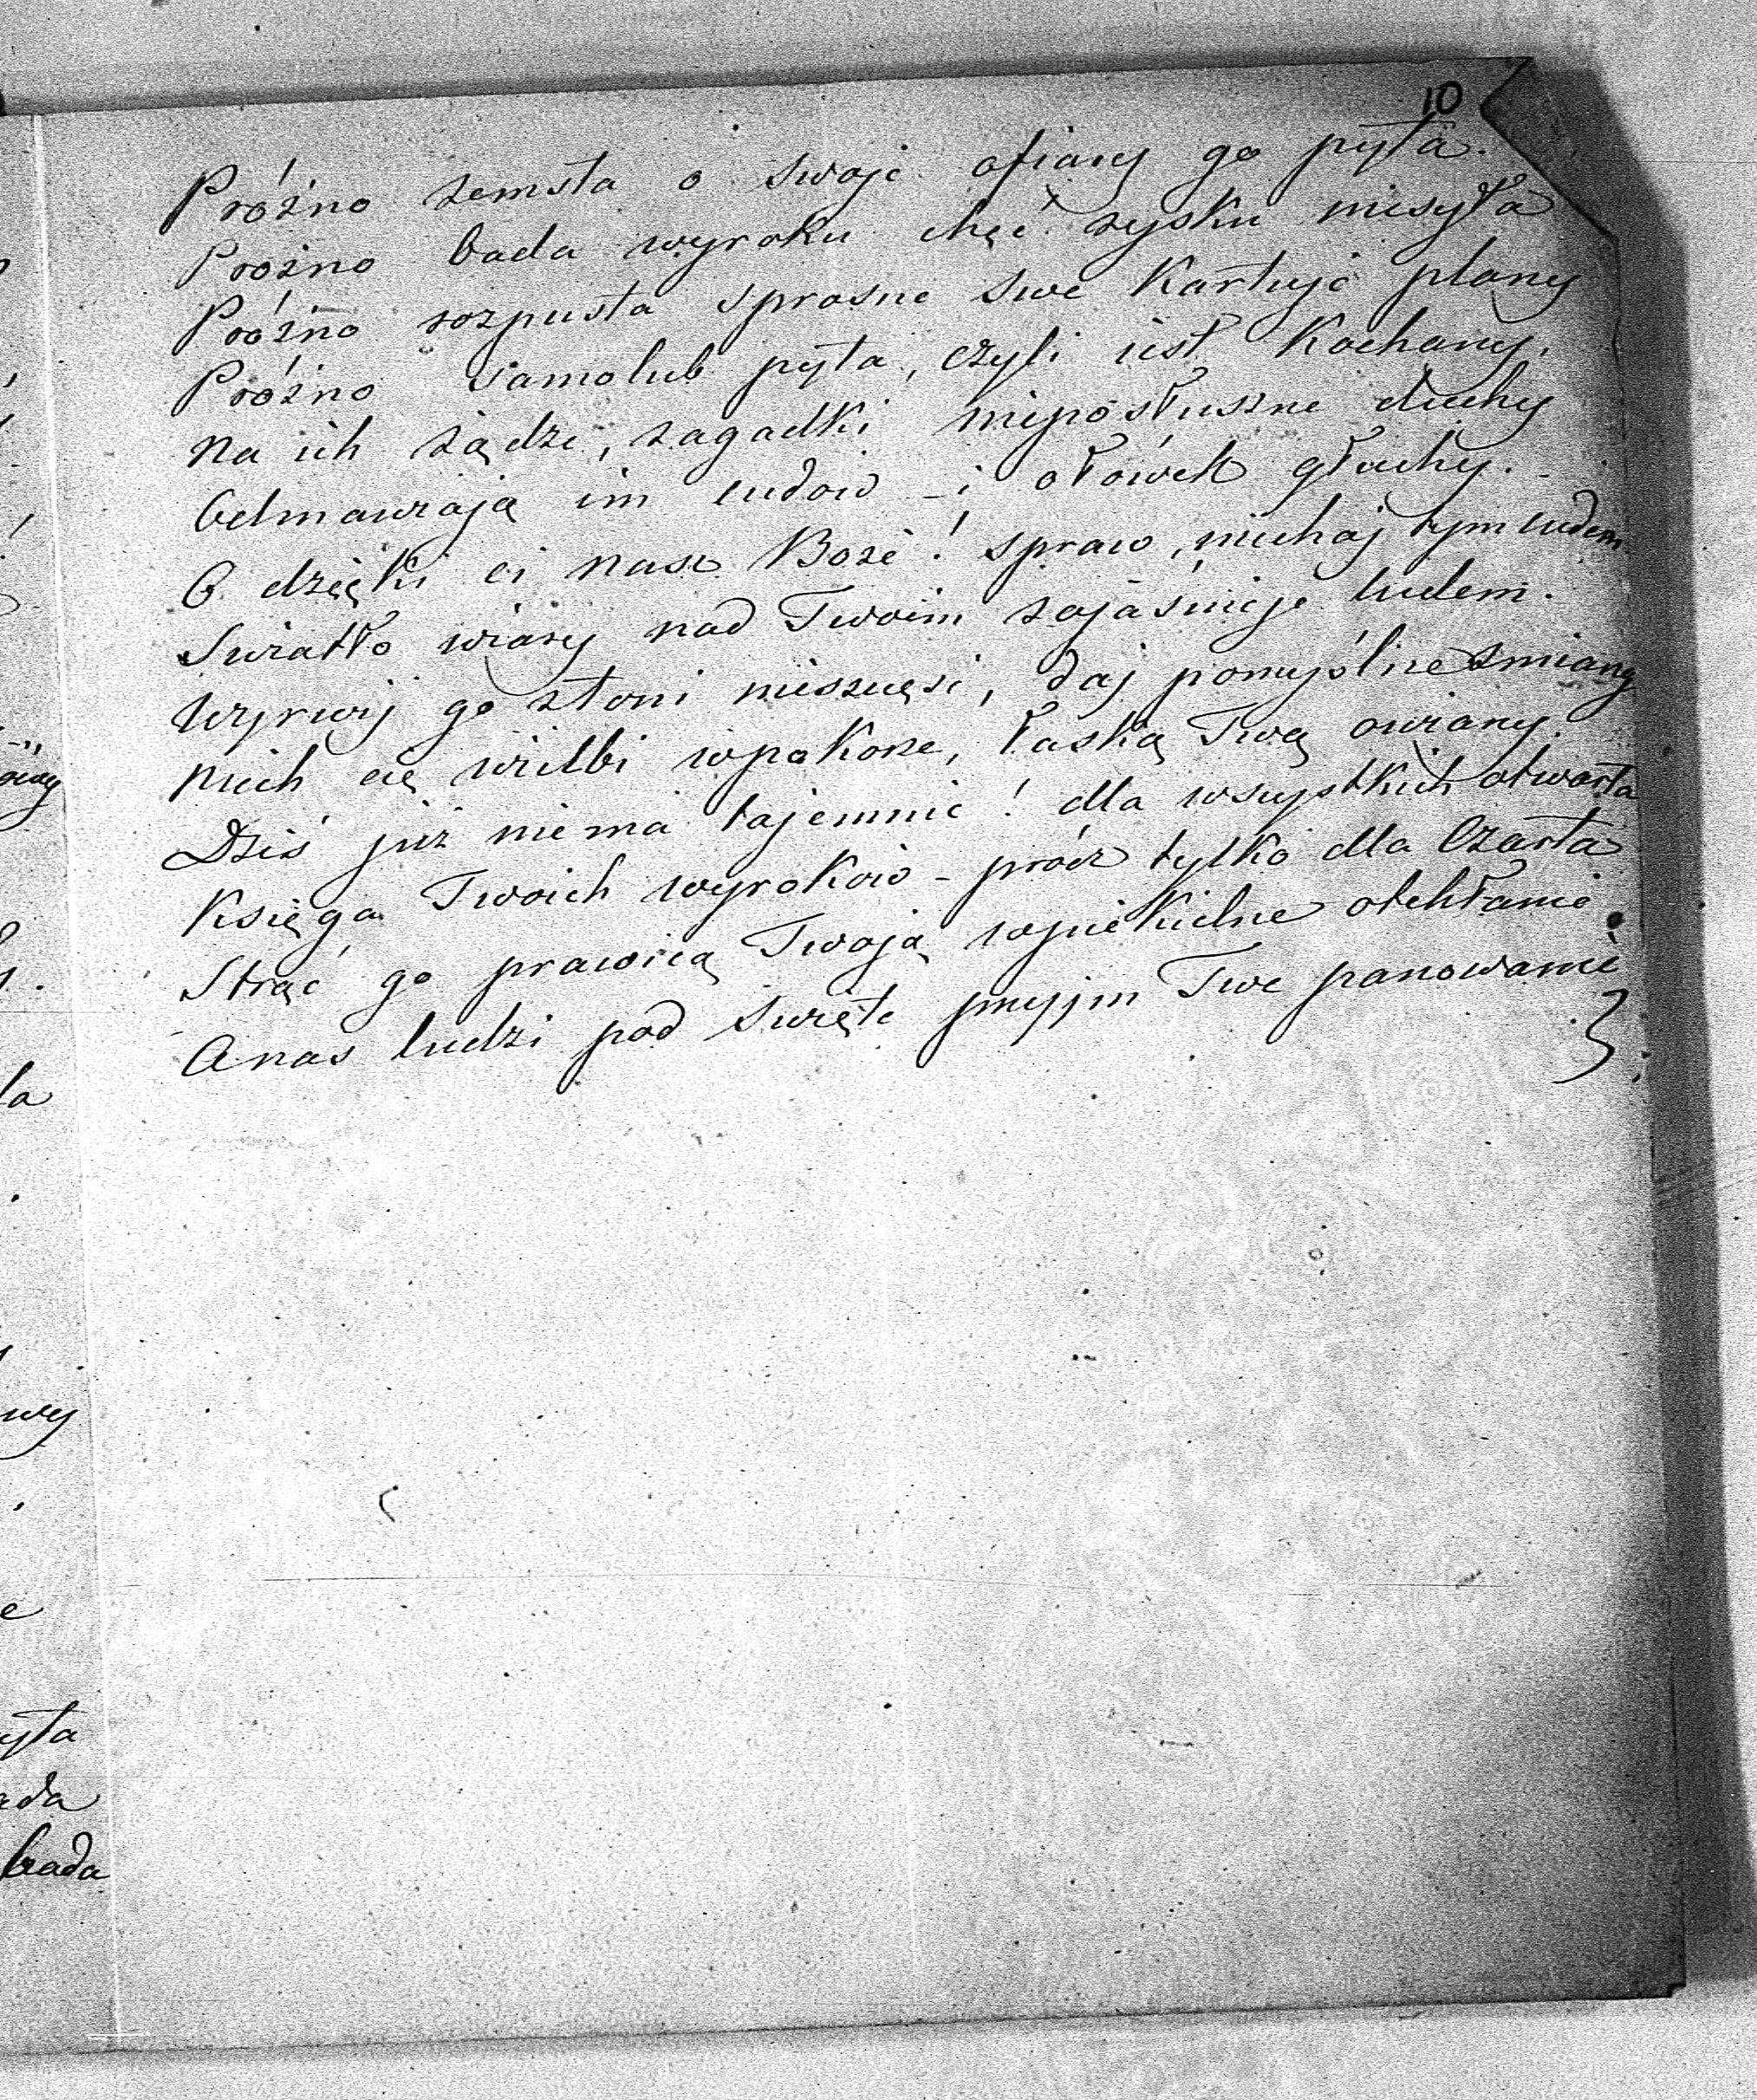 10
Próżno zemsta o swoje ofiary go pyta.
Próżno bada wyroku chęć zysku niesyta
Próżno rozpusta sprosne swe kartuje plany
Próżno samolub pyta, czyli jest kochany,
na ich żądze, zagadki nieposłuszne duchy
Odmawiają im cudów - i ołówek głuchy.
O dzięki ci nasz Boże! spraw, niechaj tym cudem
Światło wiary nad Twoim zajaśnieje ludem.
Wyrwij go z toni nieszczęść, daj pomyślne zmiany
niech cię wielbi w pokorze, łaską Twą owiany.
Dziś już nie ma tajemnic! dla wszystkich otwarta
Księga Twoich wyroków - prócz tylko dla Czarta
Strąć go prawicą Twoją w piekielne otchłanie
A nas ludzi pod święte przyjm Twe panowanie
ła
wy
e
yta
ada
bada